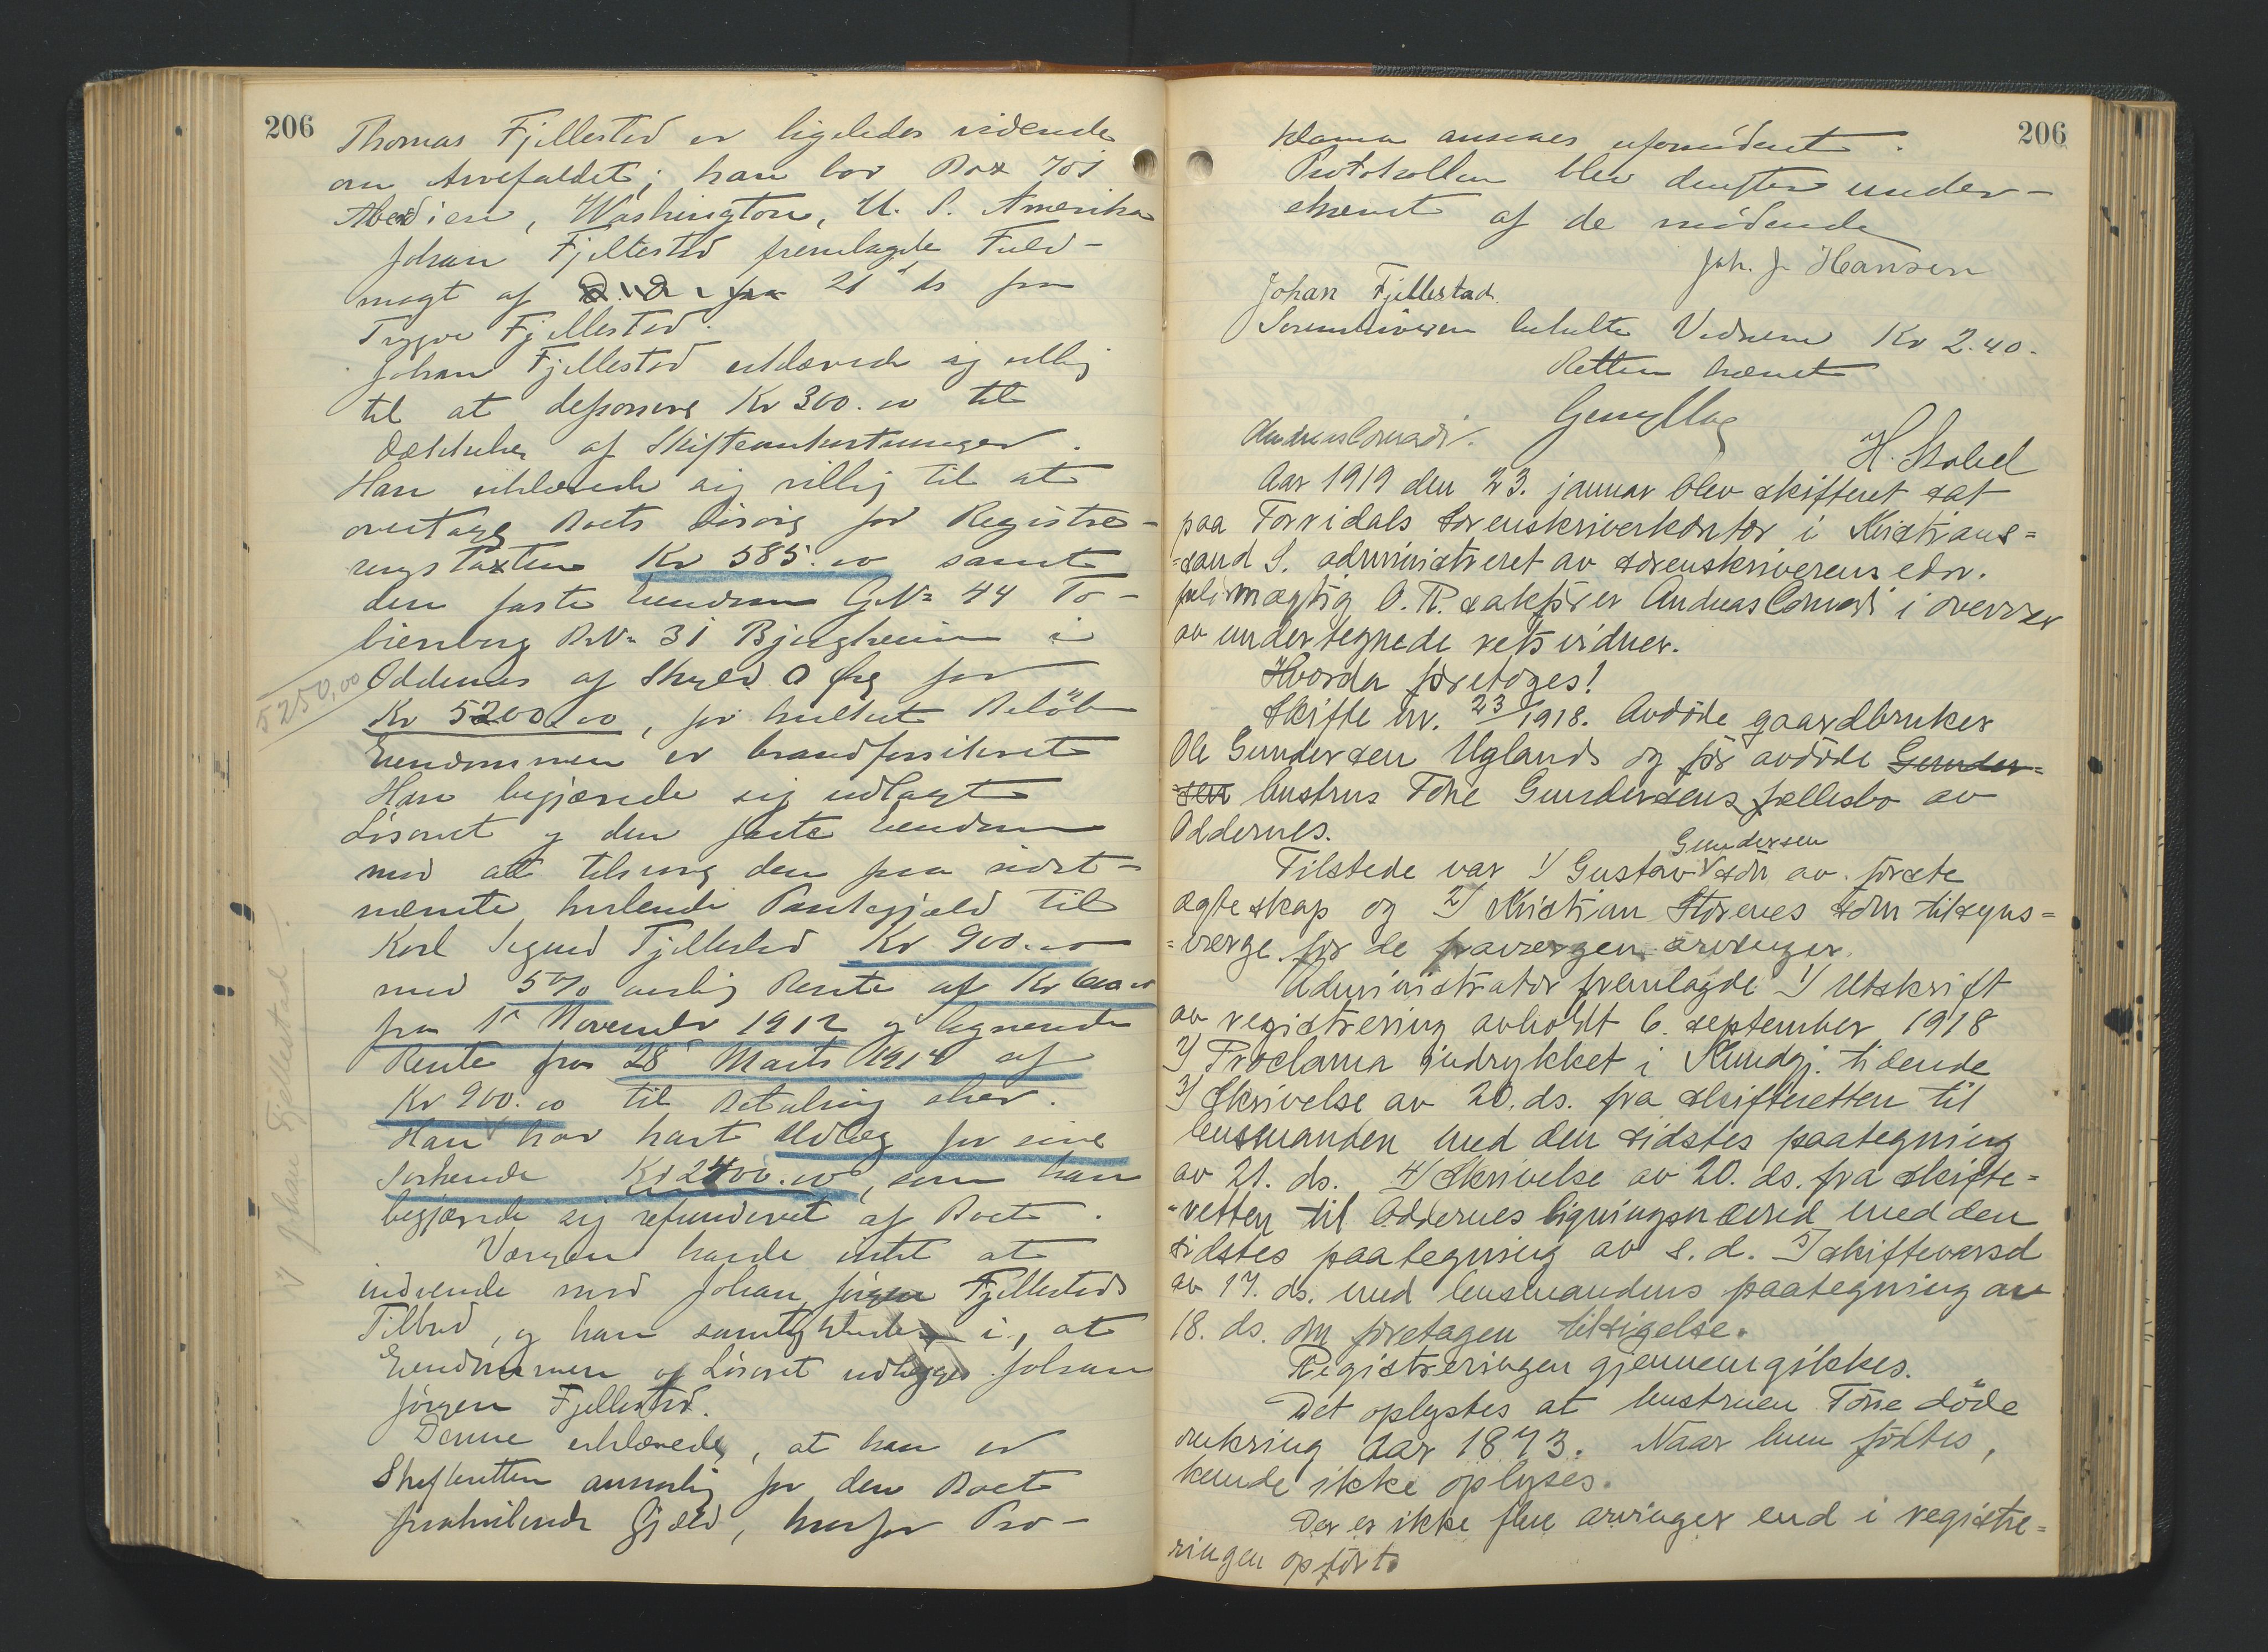 206
Thomas Fjellestad er ligeledes vidende
om Arvefaldet; han bor Box 701
Aberdien, Washington, U. S. Amerika
Johan Fjellestad fremlagde Fuld-
magt af 21 ds fra
Trygve Fjellestad.
Johan Fjellestad erklærede sig villig
til at deponere Kr 300.00 til
Dækkelse af Skifteomkostninger.
Han erklærede sig villig til at
overtage Boets Løsøre for Registre-
ringstaxten Kr 585.00 samt
den faste Eiendom G.No 44 To-
bienborg B.No 31 Bjergheim i
Oddernes af Skyld 0 Øre for
5250,00
Kr 5200.00, for hvilket Beløb
Eiendommen er brandforsikret
Han begjærede sig udlagt
Løsøret og den faste Eiendom
mod at tilsvare den paa sidst-
nævnte hvilende Pantegjæld til
Karl Sigurd Fjellestad Kr 900.00
med 5% aarlig Rente af Kr 600.00
fra 1ste November 1912 og lignende
Rente fra 28de Marts 1914 af
Kr 900.00 til Betaling sker.
Han har havt Udlæg for sine
Forhende Kr 2400.00, som han
begjærede sig refunderet af Boet.
Værgen havde intet at
indvende mod Johan Jørgen Fjellestads
Tilbud, og han samtykkede i, at
Eiendommen og Løsøret udlægges Johan
Jørgen Fjellestad.
Denne erklærede, at han er
Skifteretten ansvarlig for den Boet
paahvilende Gjæld, hvorfor Pro-
V Johan Fjellestad.
206
klama ansees ufornødent.
Protokollen blev derefter under-
skrevet af de mødende
Joh. J. Hansen
Johan Fjellestad.
Sorenskriveren betalte Vidnerne Kr 2.40.
Retten hævet
Andreas Conradi.
H. Stabel
Aar 1919 den 23. januar blev skifteret sat
paa Torridals sorenskriverkontor i Kristians=
=sand S. administreret av sorenskriverens edsv.
fuldmægtig O. R. sakfører Andreas Conradi i overvær
av undertegnede retsvidner.
Hvorda foretoges!
Skifte nr. 23/1918. Avdøde gaardbruker
Ole Gundersen Uglands og før avdøde Gunder=
sen hustrus Tone Gundersens fællesbo av
Oddernes.
Gundersen
Tilstede var 1/ Gustav V søn av første
ægteskap og 2/ Kristian Størenes som tilsyns=
=værge for de fraværgen arvinger.
Administrator fremlagde 1/ Utskrift
av registrering avholdt 6. september 1918
2/ Proclama indrykket i Kundgj. tidende
3/ Skrivelse av 20. ds. fra skifteretten til
lensmanden med den sidstes paategning
av 21. ds. 4/ Skrivelse av 20. ds. fra skifte=
=retten til Oddernes ligningsnævnd med den
sidstes paategning av s. d. 5/ skiftevarsel
av 17. ds. med lensmandens paategning av
18. ds. om foretagen tilsigelse.
Registreringen gjennemgikkes.
Det oplystes at hustruen Tone døde
omkring aar 1873. Naar hun fødtes,
kunde ikke oplyses.
Der er ikke flere arvinger end i registre=
ringen opført.